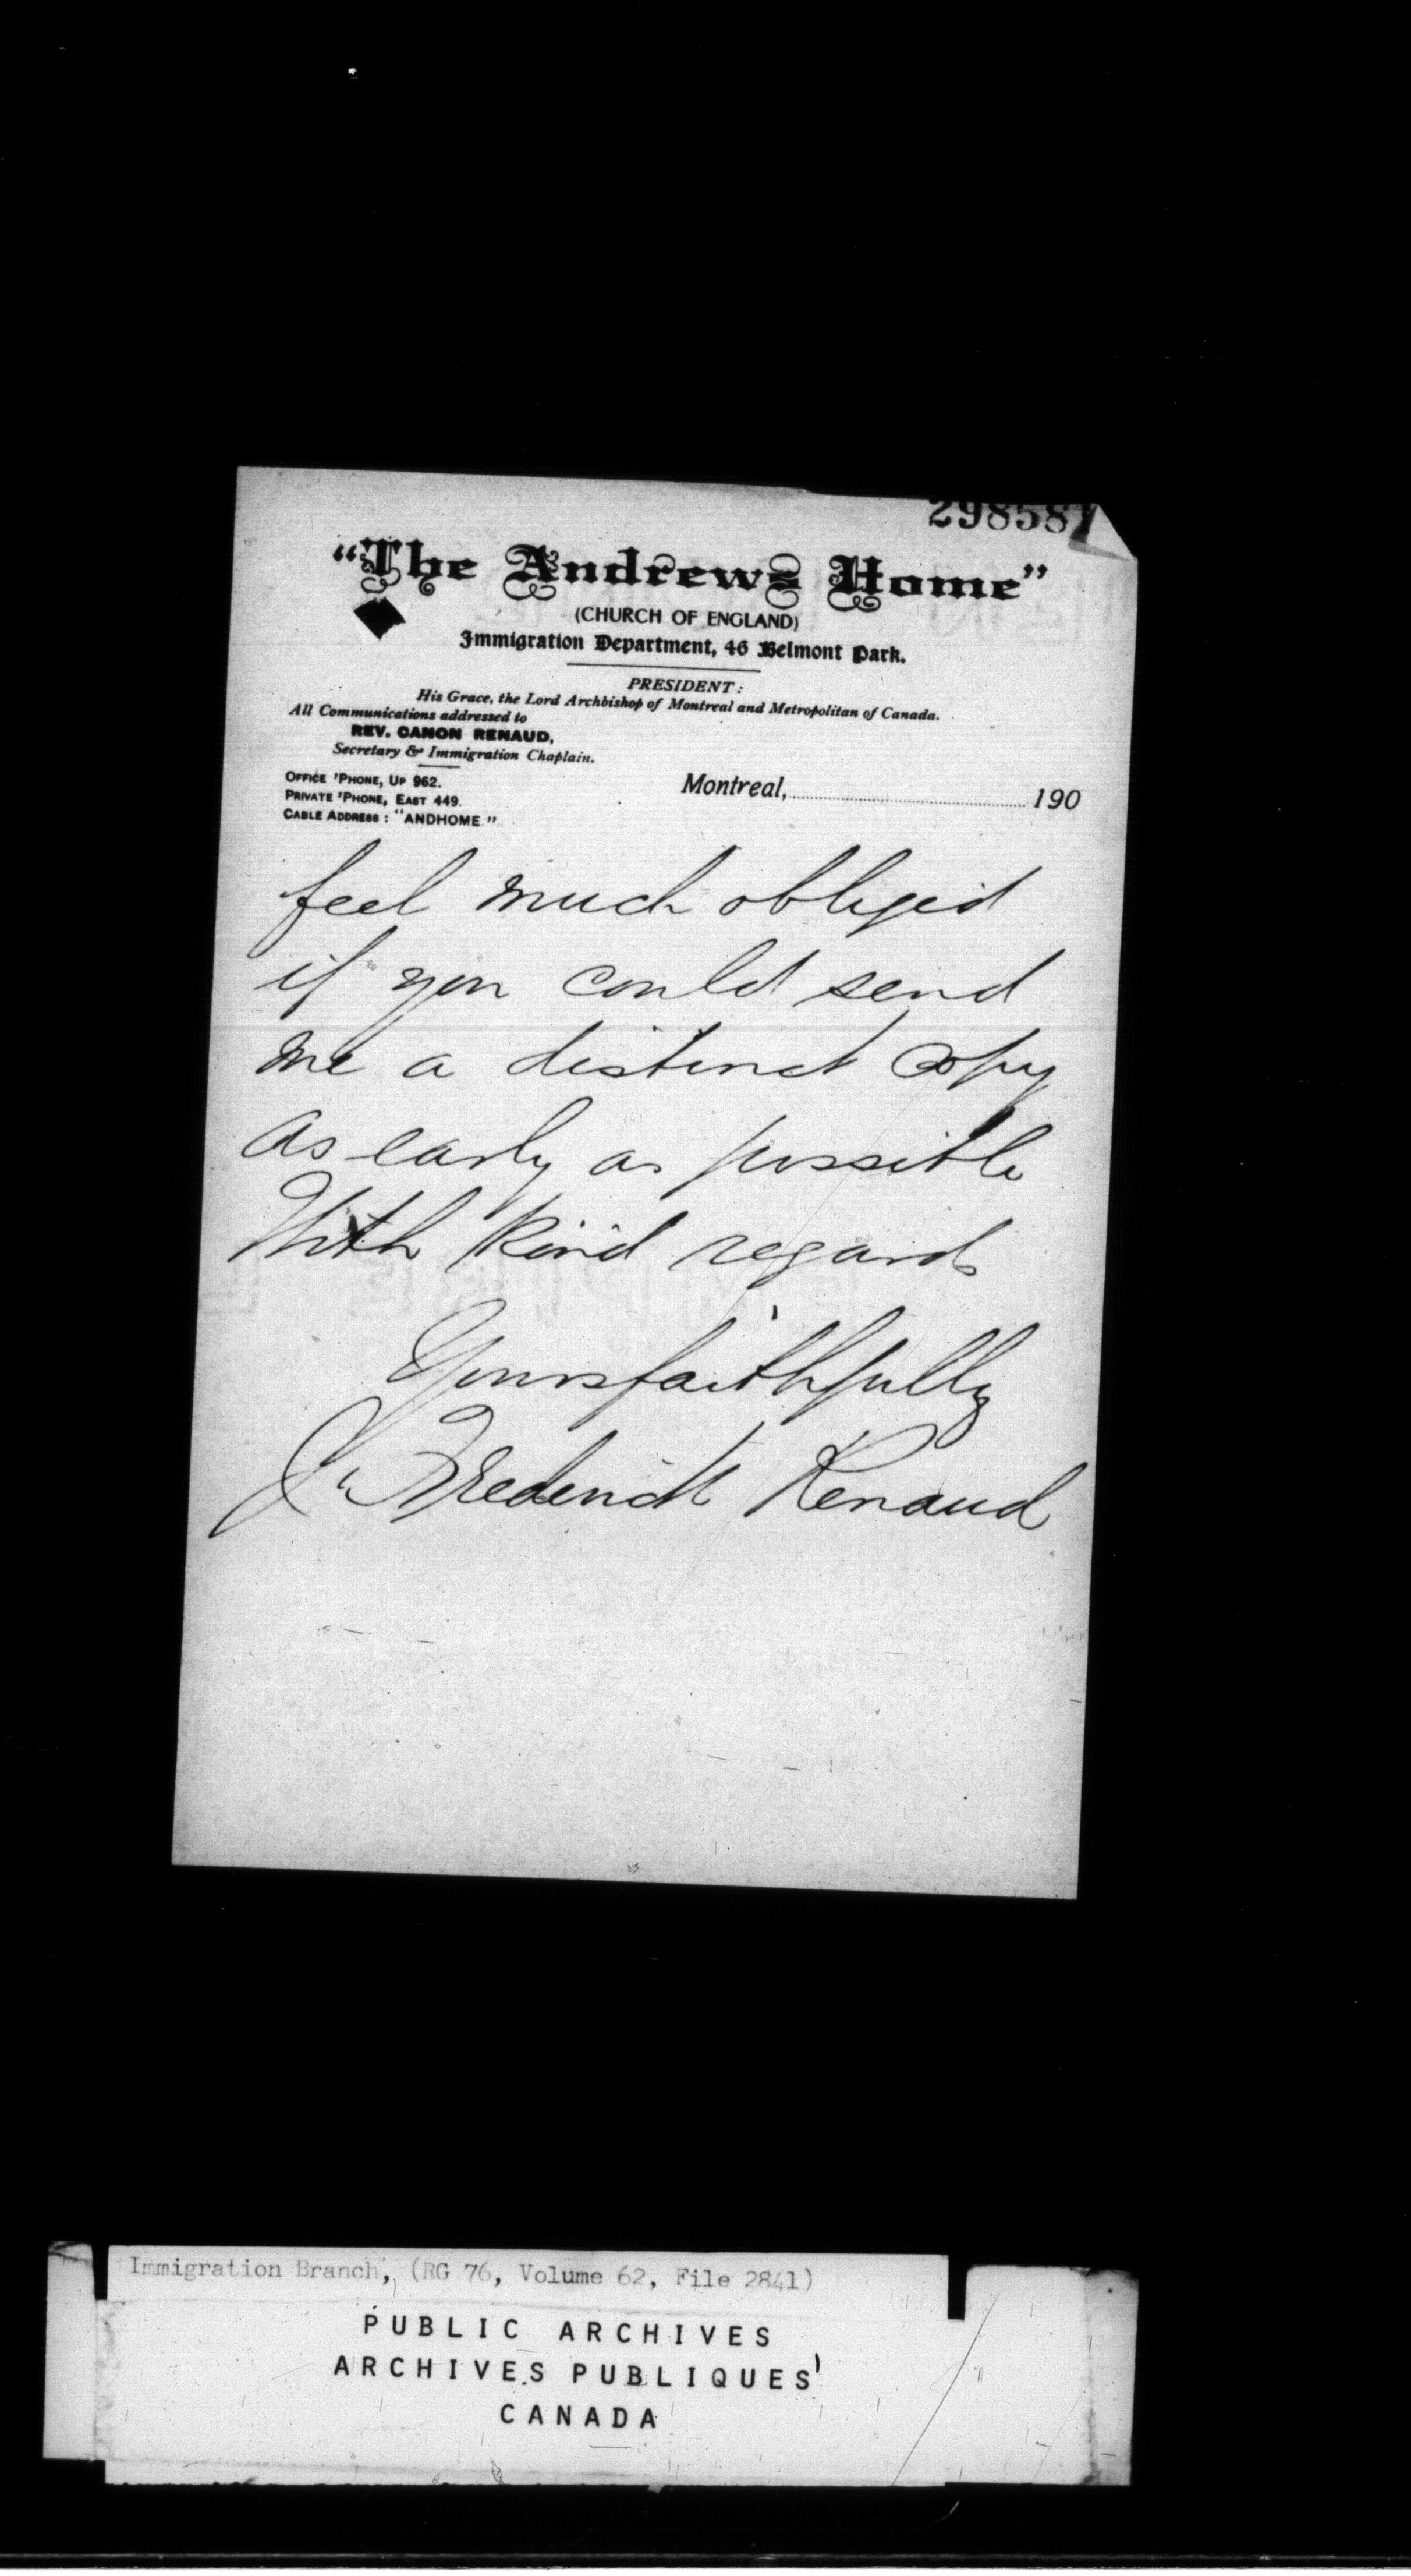 298587
“The Andrews Home”
(CHURCH OF ENGLAND)
Immigration Department, 46 Belmont Park.
PRESIDENT:
His Grace, the Lord Archbishop of Montreal and Metropolitan of Canada.
All Communications addressed to
REV. CANON RENAUD,
Secretary & Immigration Chaplain.
OFFICE 'PHONE, UP 962.
PRIVATE 'PHONE, EAST 449.
CABLE ADDRESS: "ANDHOME."
Montreal, 190
feel much obliged
if you could send
me a distinct copy
as early as possible
With kind regards
Yours faithfully
J. Frederick Renaud
Immigration Branch, (RG 76, Volume 62, File 2841)
PUBLIC ARCHIVES
ARCHIVES PUBLIQUES
CANADA